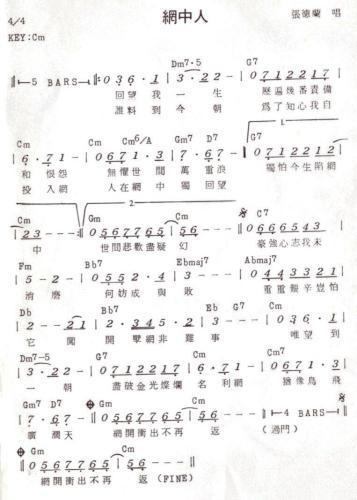 網中人
4/4
張德蘭 唱
KEY:Cm
Dm7-5 G7
5 BARS 036·1 3·22- 0712217
回望我一生 歷遍幾番責備
誰料到今朝 為了知心我自
1.
Cm Cm Cm6/A Gm7 D7 G7 Cm
6·71- 0671·3 7·67- 0712212
和恨怨 無懼世間萬重浪 獨怕今生陷網
投入網 人在網中獨回望
2
Cm Gm Cm C7
123-- 05677651 56-- 0666543
中 世間悲歡盡疑幻 豪強心志我未
Fm Bb7 Ebmaj7 Ebmaj7
5-2- 0552·4 3--- 0443321
消磨 何妨成與敗 重重艱辛豈怕
Db Bb7 Eb Cm
2--21 2·3452 3--- 0671·
它 闖開孽網非難事 唯望到
Dm7-5 G7 Cm Cm
3·22- 0712217 6·71- 0671·3
一朝 盡破金光燦爛名利網 猶像鳥飛
Gm7 D7 Gm Cm
7·67- 05677651 56-- 4 BARS
廣濶天 網開衝出不再返 (過門)
Gm Cm
05677651 56-- 56--
網開衝出不再 返(FINE)